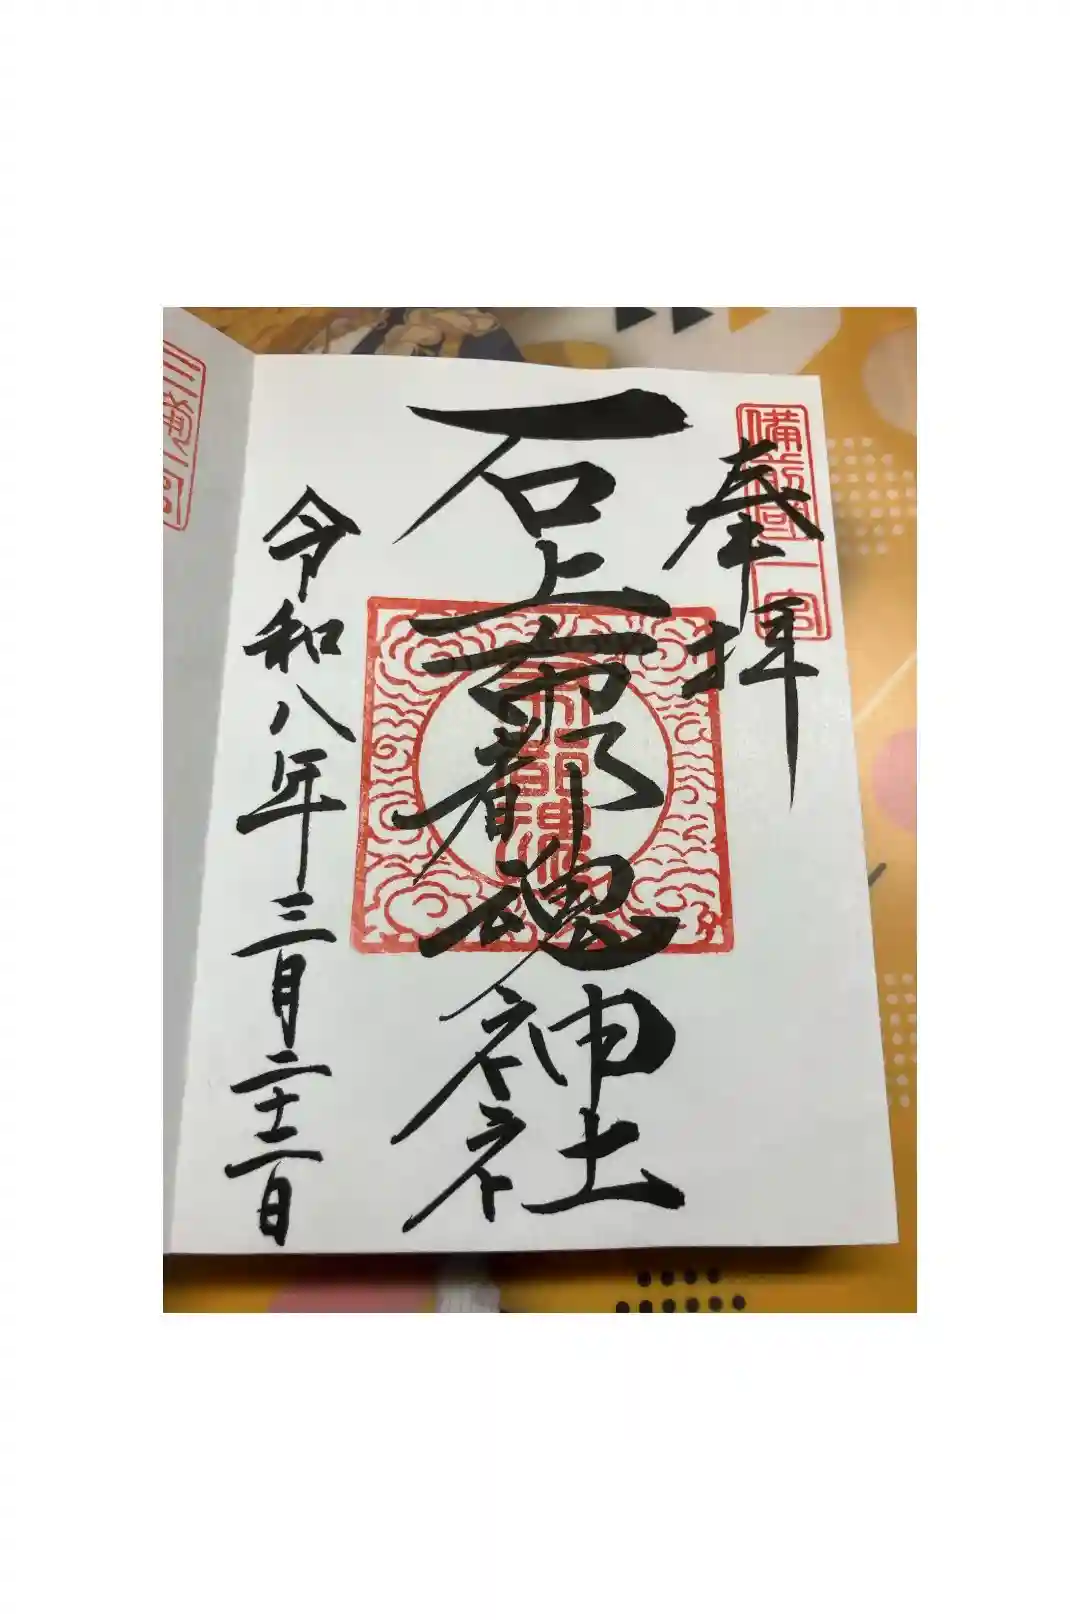 備前國一宮
奉拝
石上布都魂神社
令和八年三月二十二日